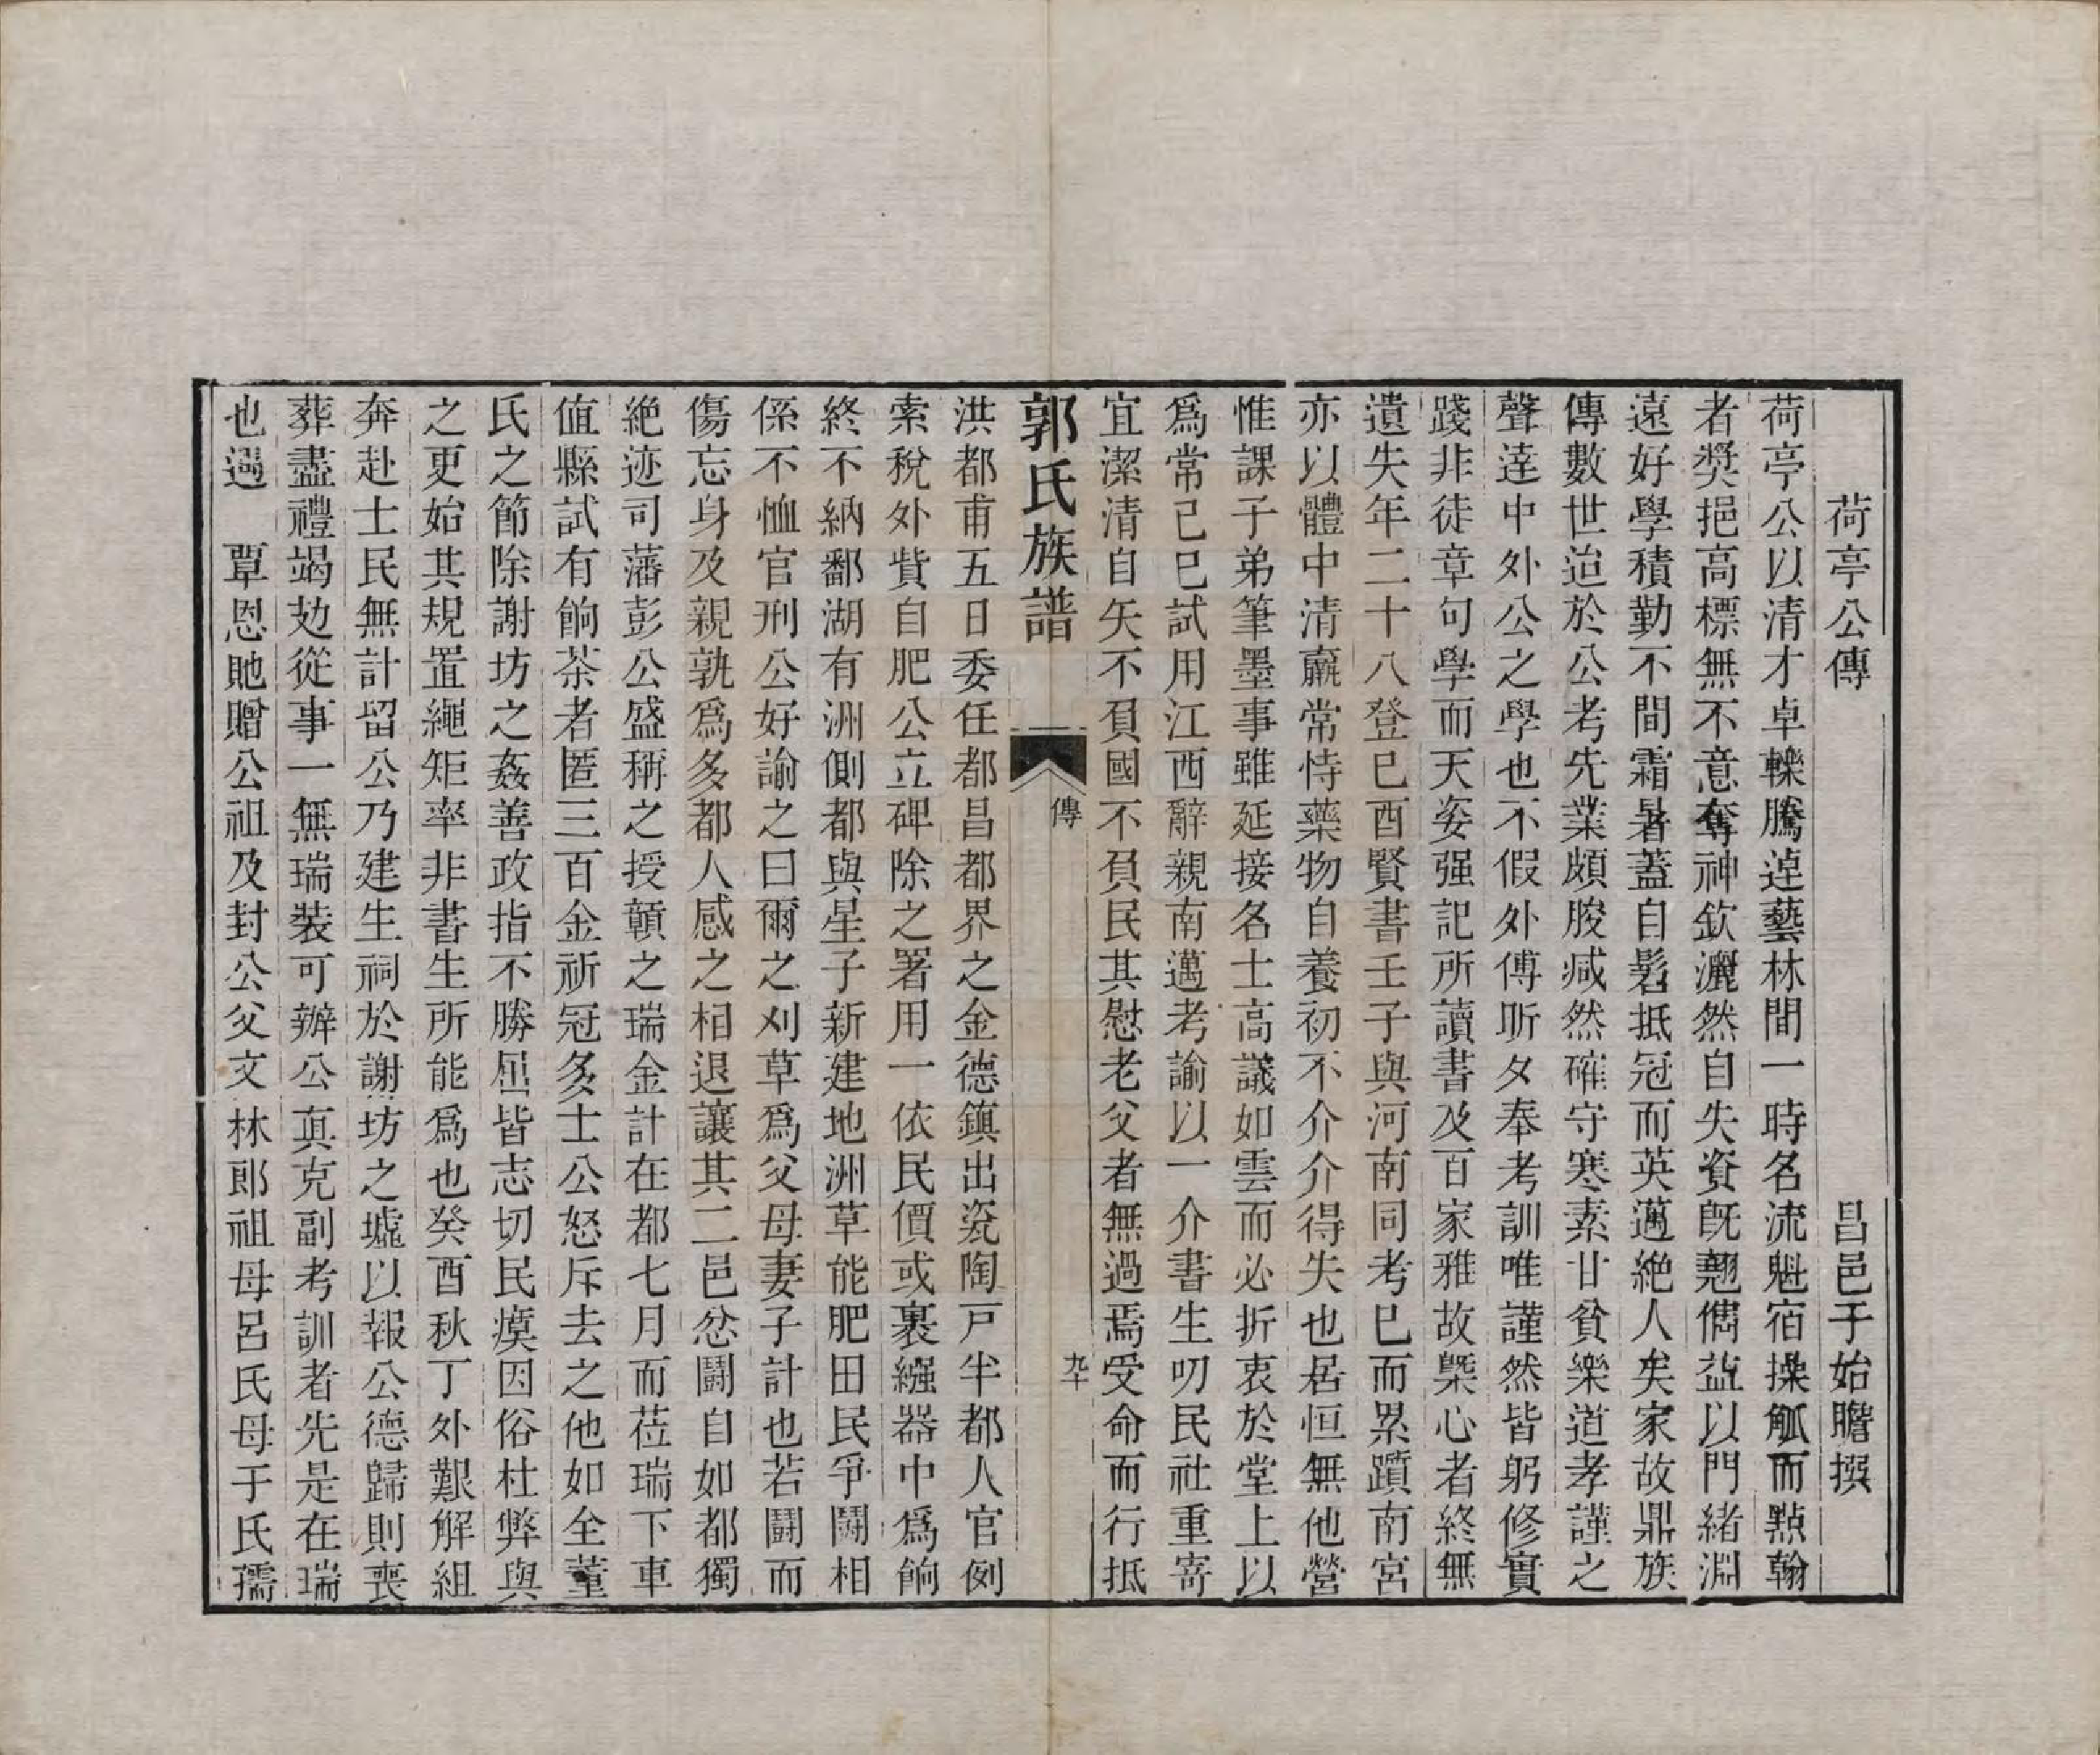 荷亭公傳　昌邑于始瞻撰
荷亭公以清才卓轢騰逴藝林間一時名流魁宿操觚而點翰
者獎挹高標無不意奪神欽灑然自失資旣翹儁益以門緒淵
遠好學積勤不間霜暑蓋自髫抵冠而英邁絶人矣家故鼎族
傳數世迨於公考先業頗朘減然確守寒素甘貧樂道孝謹之
聲達中外公之學也不假外傅昕夕奉考訓唯謹然皆躬修實
踐非徒章句學而天姿强記所讀書及百家雅故槩心者終無
遺失年二十八登己酉賢書壬子與河南同考已而累躓南宮
亦以體中清羸常恃藥物自養初不介介得失也居恒無他營
惟課子弟筆墨事雖延接名士高議如雲而必折衷於堂上以
爲常己巳試用江西辭親南邁考諭以一介書生叨民社重寄
宜潔清自矢不負國不負民其慰老父者無過焉受命而行抵
郭氏族譜　傳　九十
洪都甫五日委任都昌都界之金德鎮出瓷陶戸半都人官例
索稅外貲自肥公立碑除之署用一依民價或裹繦器中爲餉
終不納鄱湖有洲側都與星子新建地洲草能肥田民爭鬪相
係不恤官刑公好諭之曰爾之刈草爲父母妻子計也若鬪而
傷忘身及親孰爲多都人感之相退讓其二邑忿鬪自如都獨
絶迹司藩彭公盛稱之授贛之瑞金計在都七月而莅瑞下車
値縣試有餉茶者匿三百金祈冠多士公怒斥去之他如全董
氏之節除謝坊之姦善政指不勝屈皆志切民瘼因俗杜弊與
之更始其規置繩矩率非書生所能爲也癸酉秋丁外艱解組
奔赴士民無計留公乃建生祠於謝坊之墟以報公德歸則喪
葬盡禮竭攰從事一無瑞裝可辦公眞克副考訓者先是在瑞
也遇　覃恩貤贈公祖及封公父文林郎祖母呂氏母于氏孺